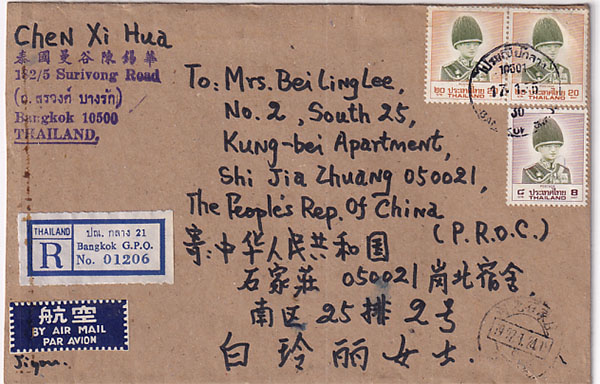 Chen Xi Hua
泰國曼谷陳錫華
152/5 Surivong Road
(ถ. สุรวงศ์ บางรัก)
Bangkok 10500
THAILAND.
To: Mrs. Bei Ling Lee,
No. 2, South 25,
Kung-bei Apartment,
Shi Jia Zhuang 050021,
The People's Rep. Of China
(P.R.O.C.)
寄:中华人民共和国
石家莊 050021 岗北宿舍
南区25排2号
白玲丽女士.
THAILAND
R
ปณ. กลาง 21
Bangkok G.P.O.
No. 01206
航空
BY AIR MAIL
PAR AVION
๒๐ ประเทศไทย 20
THAILAND
ประเทศไทย 20
THAILAND
๘ ประเทศไทย 8
THAILAND
10501